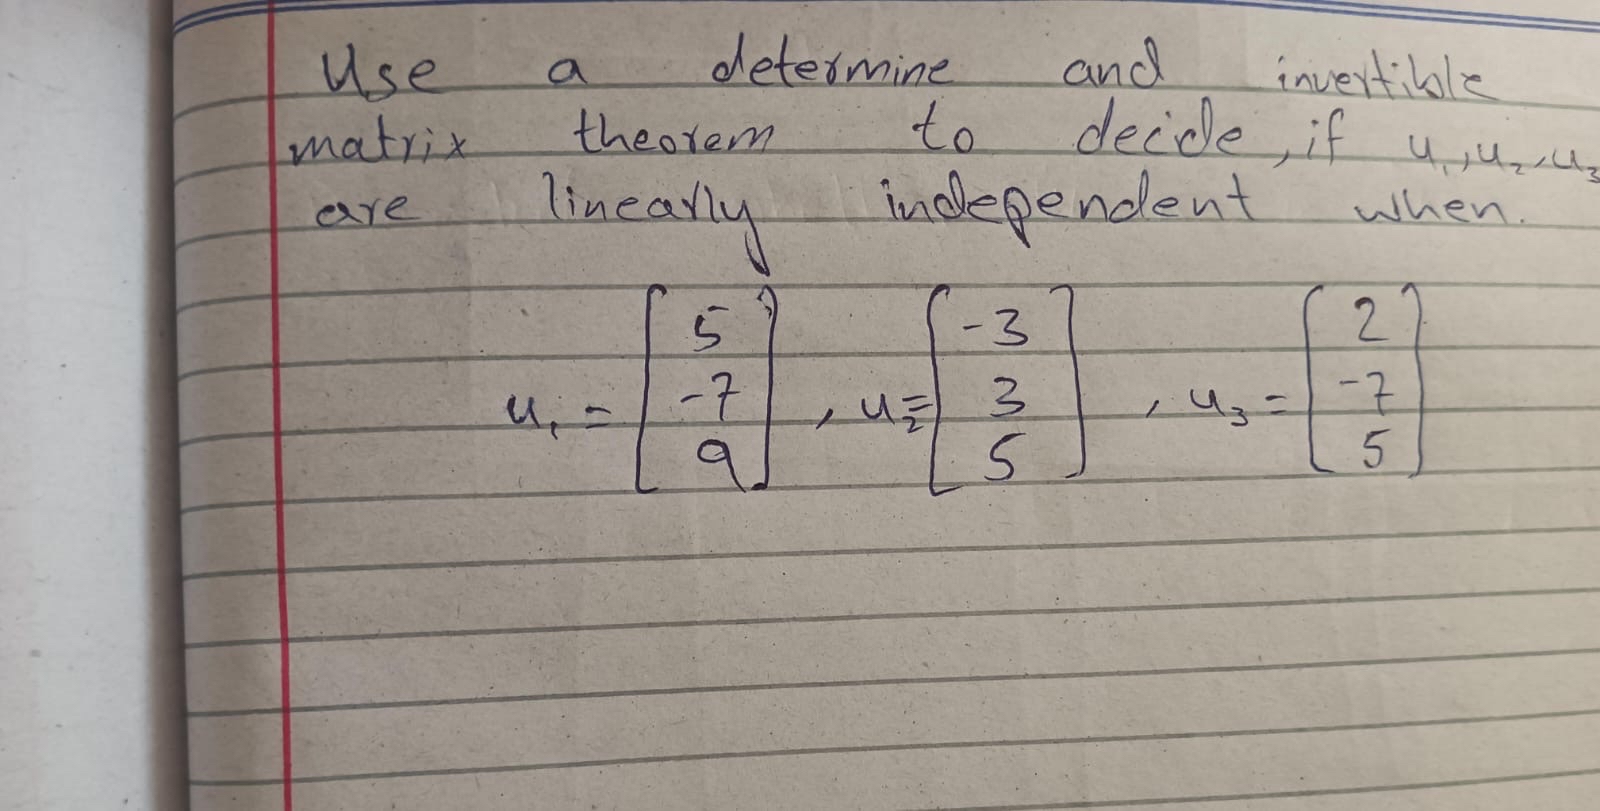 Use a determine and invertible
matrix theorem to decide, if u₁, u₂, u₃
are linearly independent when.
u₁ = [5 -7 9], u₂ = [-3 3 5], u₃ = [2 -7 5]